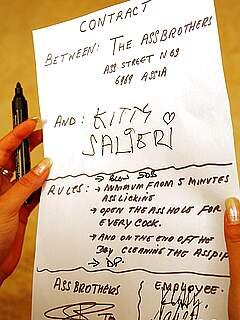 CONTRACT
BETWEEN: THE ASSBROTHERS
ASS-STREET N 69
6969 ASSIA
AND: KITTY
SALIERI
→ BLOW JOB
RULES: → MINIMUM FROM 5 MINUTES
ASSLICKING
→ OPEN THE ASSHOLE FOR
EVERY COCK.
→ AND ON THE END OFF THE
DAY CLEANING THE
→ DP.
ASSBROTHERS
EMPLOYEE.